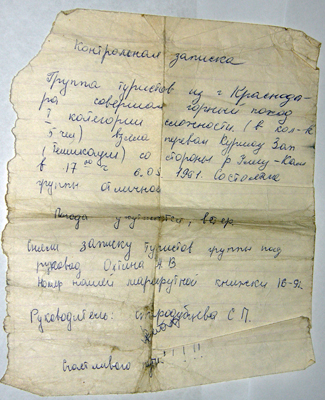 Контрольная записка
Группа туристов из г Краснода-
ра совершая горный поход
I категории сложности (в кол-ве
5 чел) взяла перевал Куршоу Зап
со стороны р Уллу-Кам
в 17 00 ч 6.05 1981. Состояние
группы отличное
Погода ухудшается, ветер
Сняли записку туристов группы под
руковод А В
Номер нашей маршрутной книжки 18-
Руководитель: Стародубцева С П.
Счастливого пути!!!!!